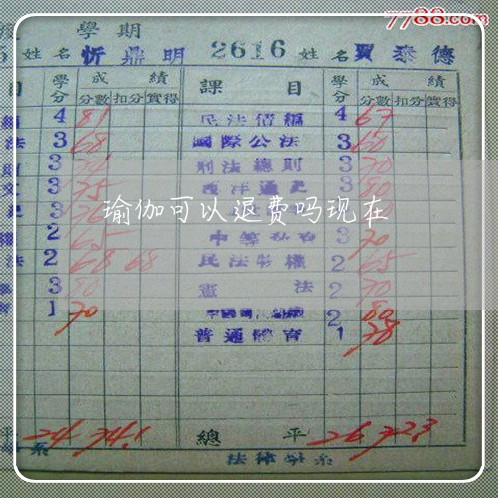 7788.com
學期
姓名 忻鼎明 2616 姓名 賈泰德
目 學分 成績 課目 學分 成績
分數 扣分 實得 分數 扣分 實得
4 81 民法債編 4 67
法 3 68 國際公法 3 60
3 刑法總則 3 70
3 75 西洋通史 3 80
3
瑜伽可以退费吗现在
2 65 3 70
法 2 68 68 民法物權 2 65
3 80 憲法 2 70
1 70 2 80
普通體育 1 78
平 24 74.1 總平 26 72.3
系 法律學系